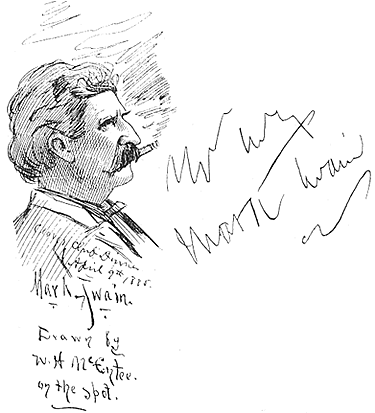 Club Dinner
April 9th, 1885.
Mark Twain.
Drawn by
W. H. McEntee.
on the spot.
Mark Twain